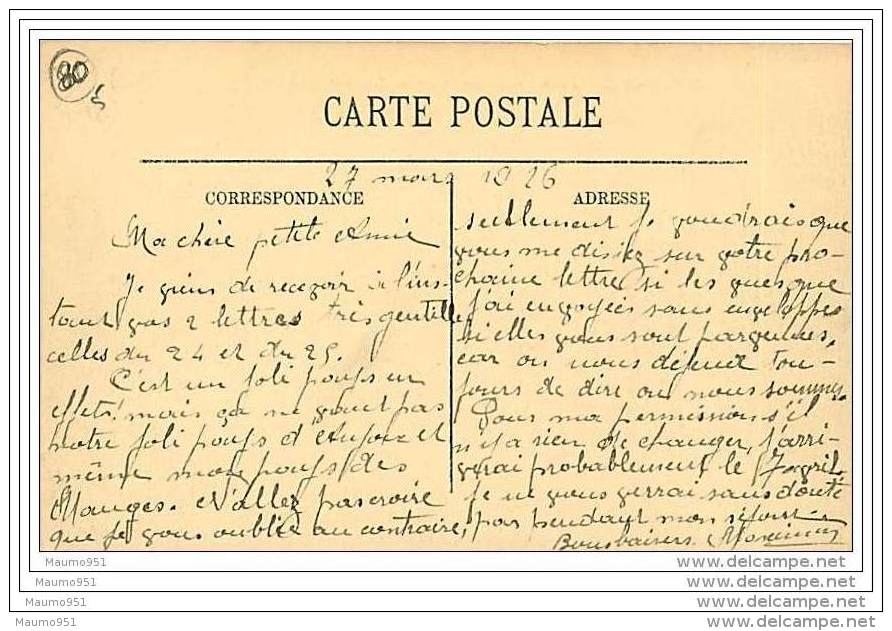 80
CARTE POSTALE
27 mars 1926
CORRESPONDANCE
Ma chère petite Amie
Je viens de recevoir à l'ins-
tant vos 2 lettres très gentilles
celles du 24 et du 25.
C'est un joli pays en
effet! mais ça ne vaut pas
notre joli pays d'Anjou et
même mon pays des
Mauges. N'allez pas croire
que je vous oublie au contraire,
ADRESSE
seulement je voudrais que
vous me disiez sur votre pro-
chaine lettre si les vues que
j'ai envoyées sans enveloppes
si elles vous sont parvenues,
car on nous défend tou-
jours de dire où nous sommes.
Pour ma permission, s'il
n'y a rien de changer, j'arri-
verai probablement le 7 avril.
Je ne vous verrai sans doute
pas pendant mon séjour
Bons baisers
Maumo951
Maumo951
Maumo951
Maumo951
delcampe.net
delcampe.net
delcampe.net
delcampe.net